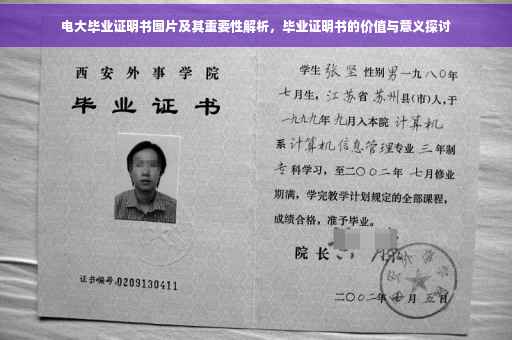 电大毕业证明书图片及其重要性解析，毕业证明书的价值与意义探讨
西安外事学院
毕业证书
证书编号:0209130411
学生张坚性别男一九八〇年
七月生，江苏省苏州县(市)人,于
一九九九年九月入本院计算机
系计算机信息管理专业三年制
专科学习，至二〇〇二年七月修业
期满，学完教学计划规定的全部课程，
成绩合格，准予毕业。
院长
二〇〇二年 月五日